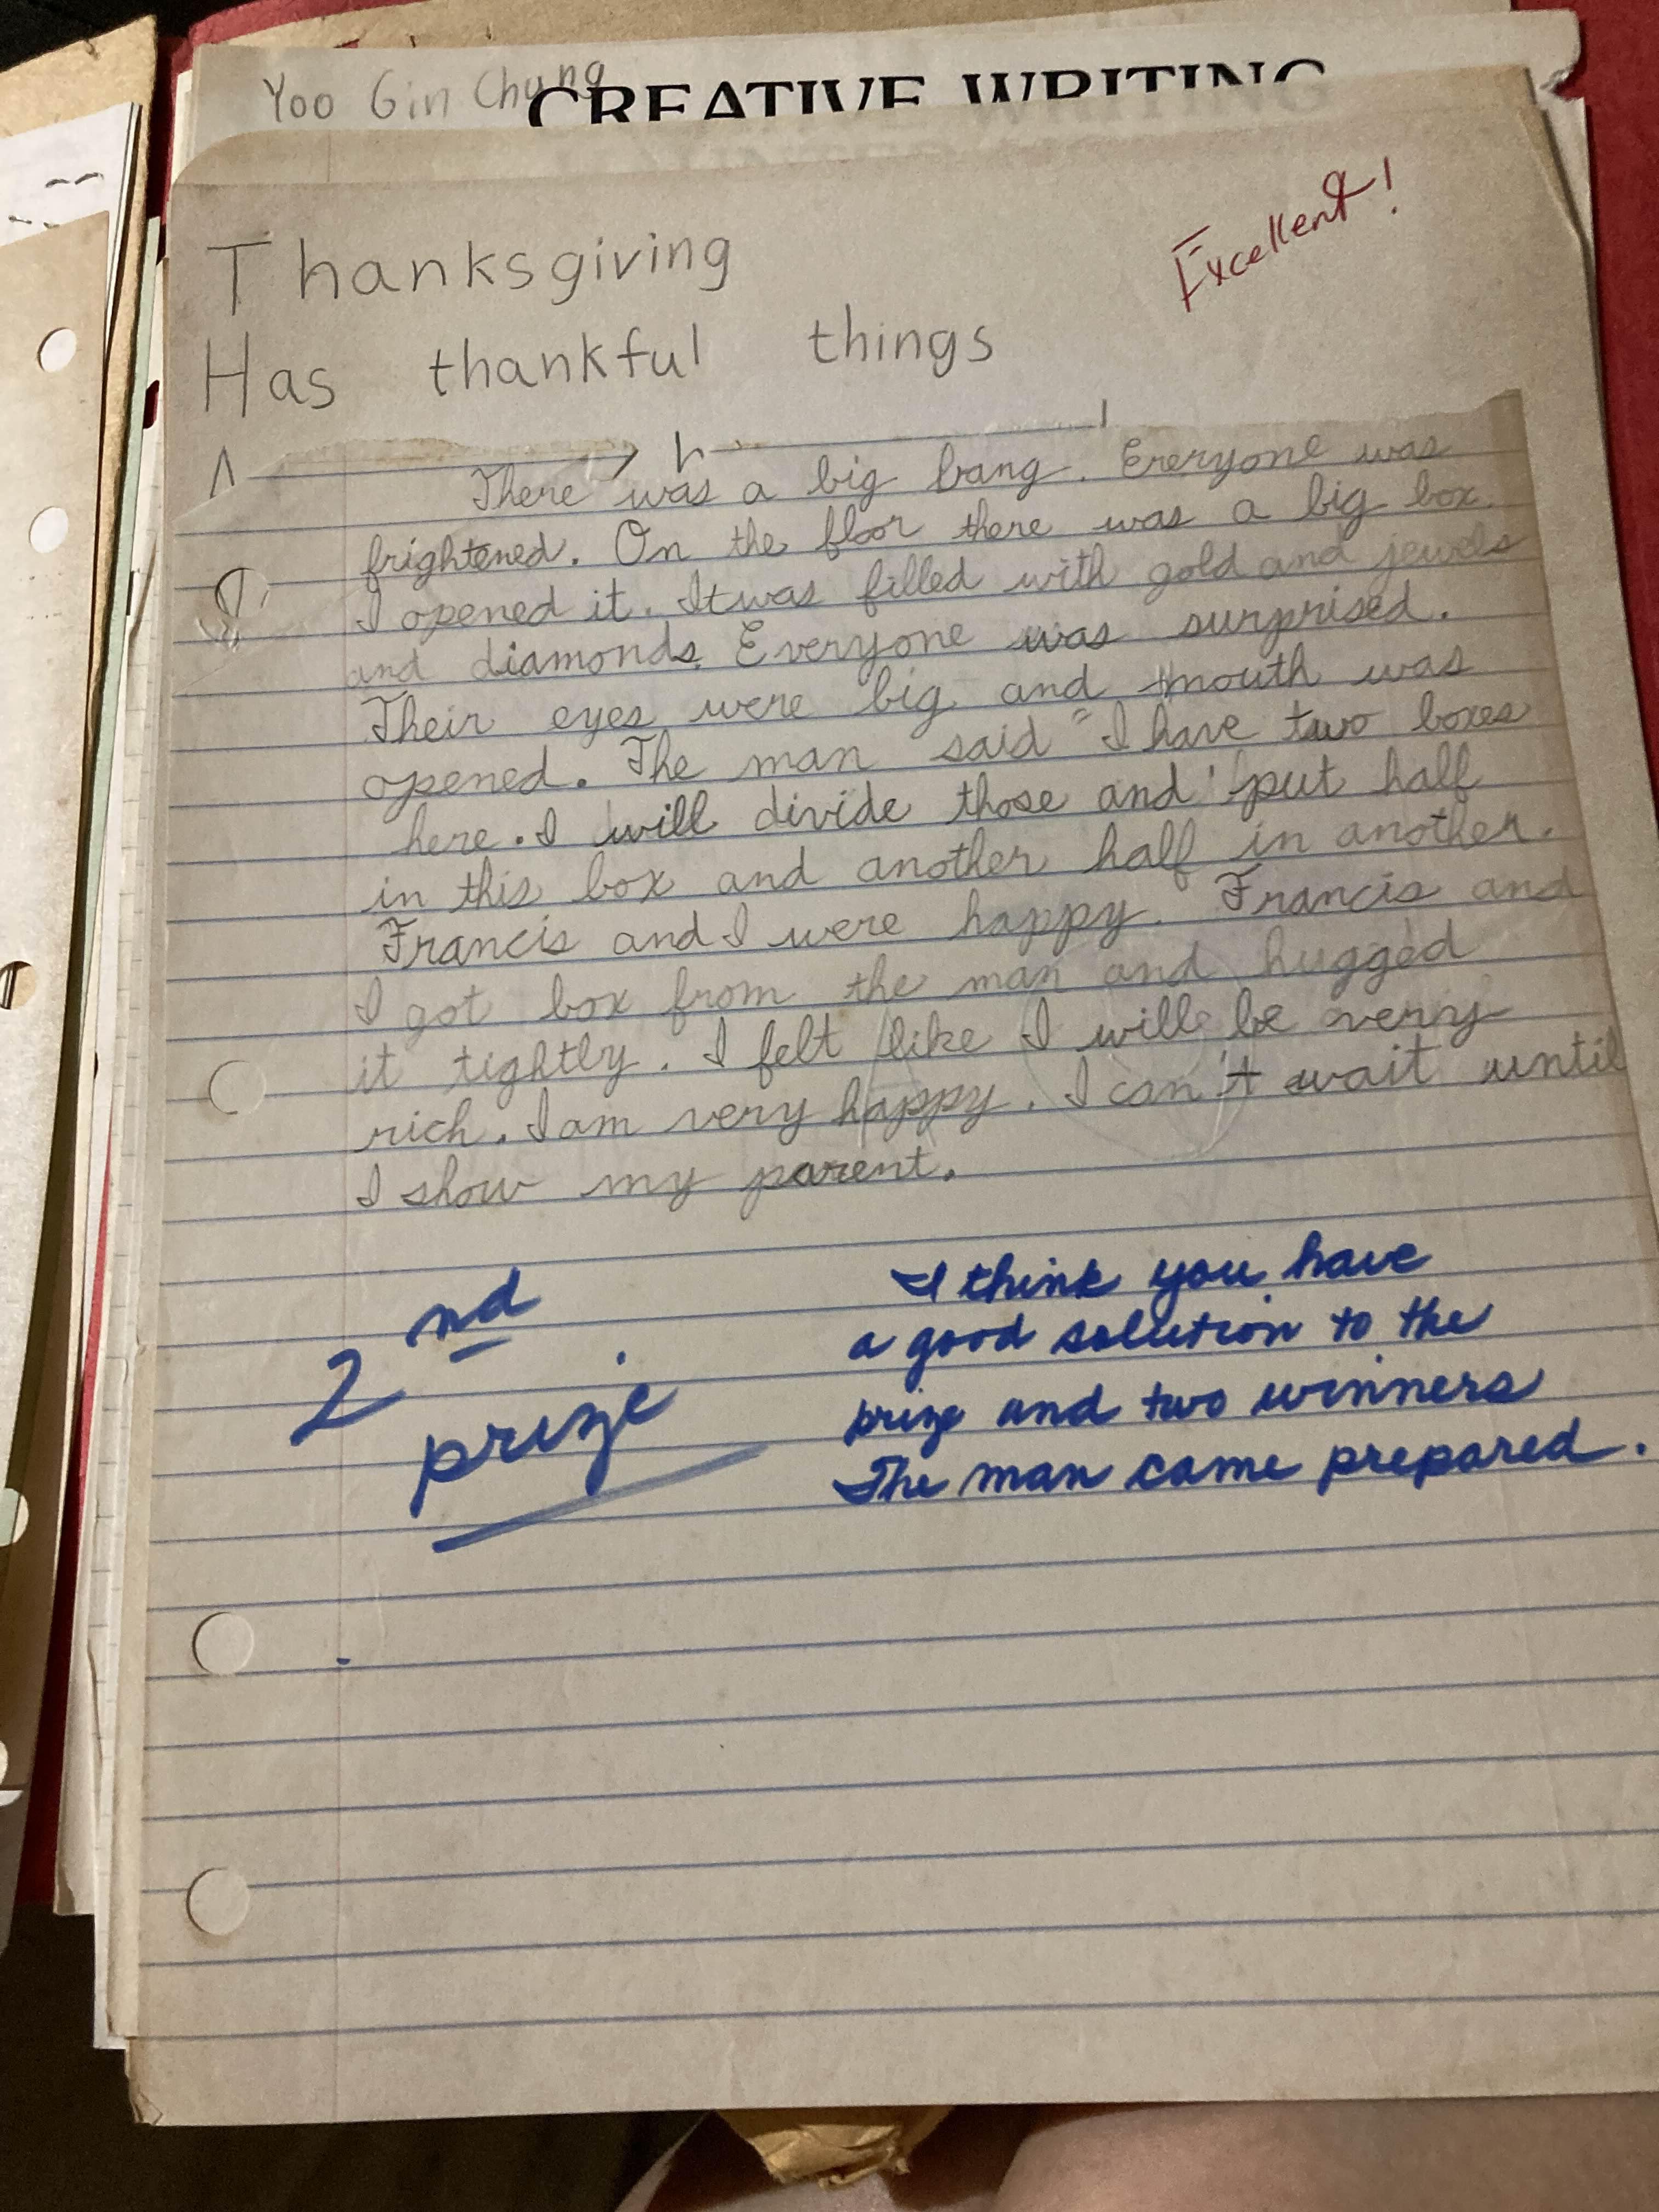 Yoo Gin Chung
CREATIVE WRITING
Excellent!
Thanksgiving
Has thankful things
There was a big bang. Everyone was
frightened. On the floor there was a big box.
I opened it. It was filled with gold and jewels
and diamonds. Everyone was surprised.
Their eyes were big and mouth was
opened. The man said "I have two boxes
here. I will divide those and put half
in this box and another half in another.
Francis and I were happy. Francis and
I got box from the man and hugged
it tightly. I felt like I will be very
rich. I am very happy. I can't wait until
I show my parent.
2nd
prize
I think you have
a good solution to the
prize and two winners
The man came prepared.